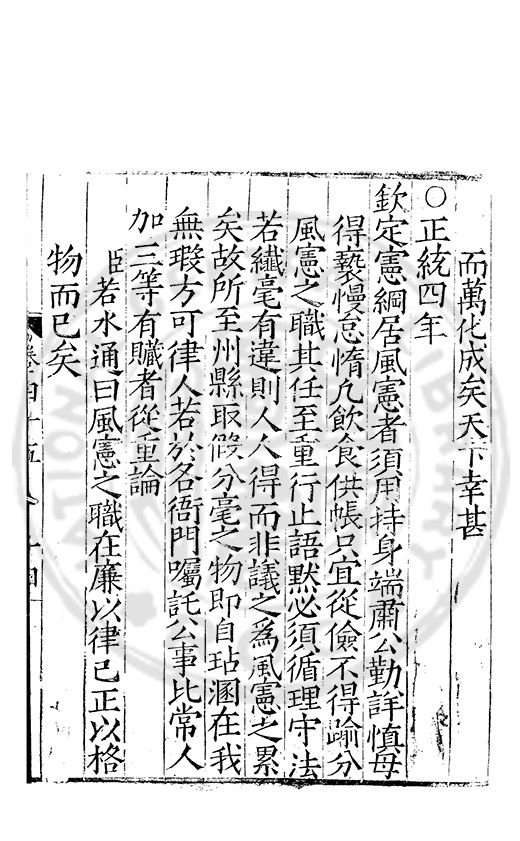 而萬化成矣天下幸甚
○正統四年
欽定憲綱居風憲者須用持身端肅公勤詳慎毋
得褻慢怠惰凡飲食供帳只宜從儉不得踰分
風憲之職其任至重行止語默必須循理守法
若纖毫有違則人人得而非議之為風憲之累
矣故所至州縣取假分毫之物即自玷溷在我
無瑕方可律人若於各衙門囑託公事比常人
加三等有贓者從重論
臣若水通曰風憲之職在廉以律已正以格
物而已矣
卷之四十五 十四